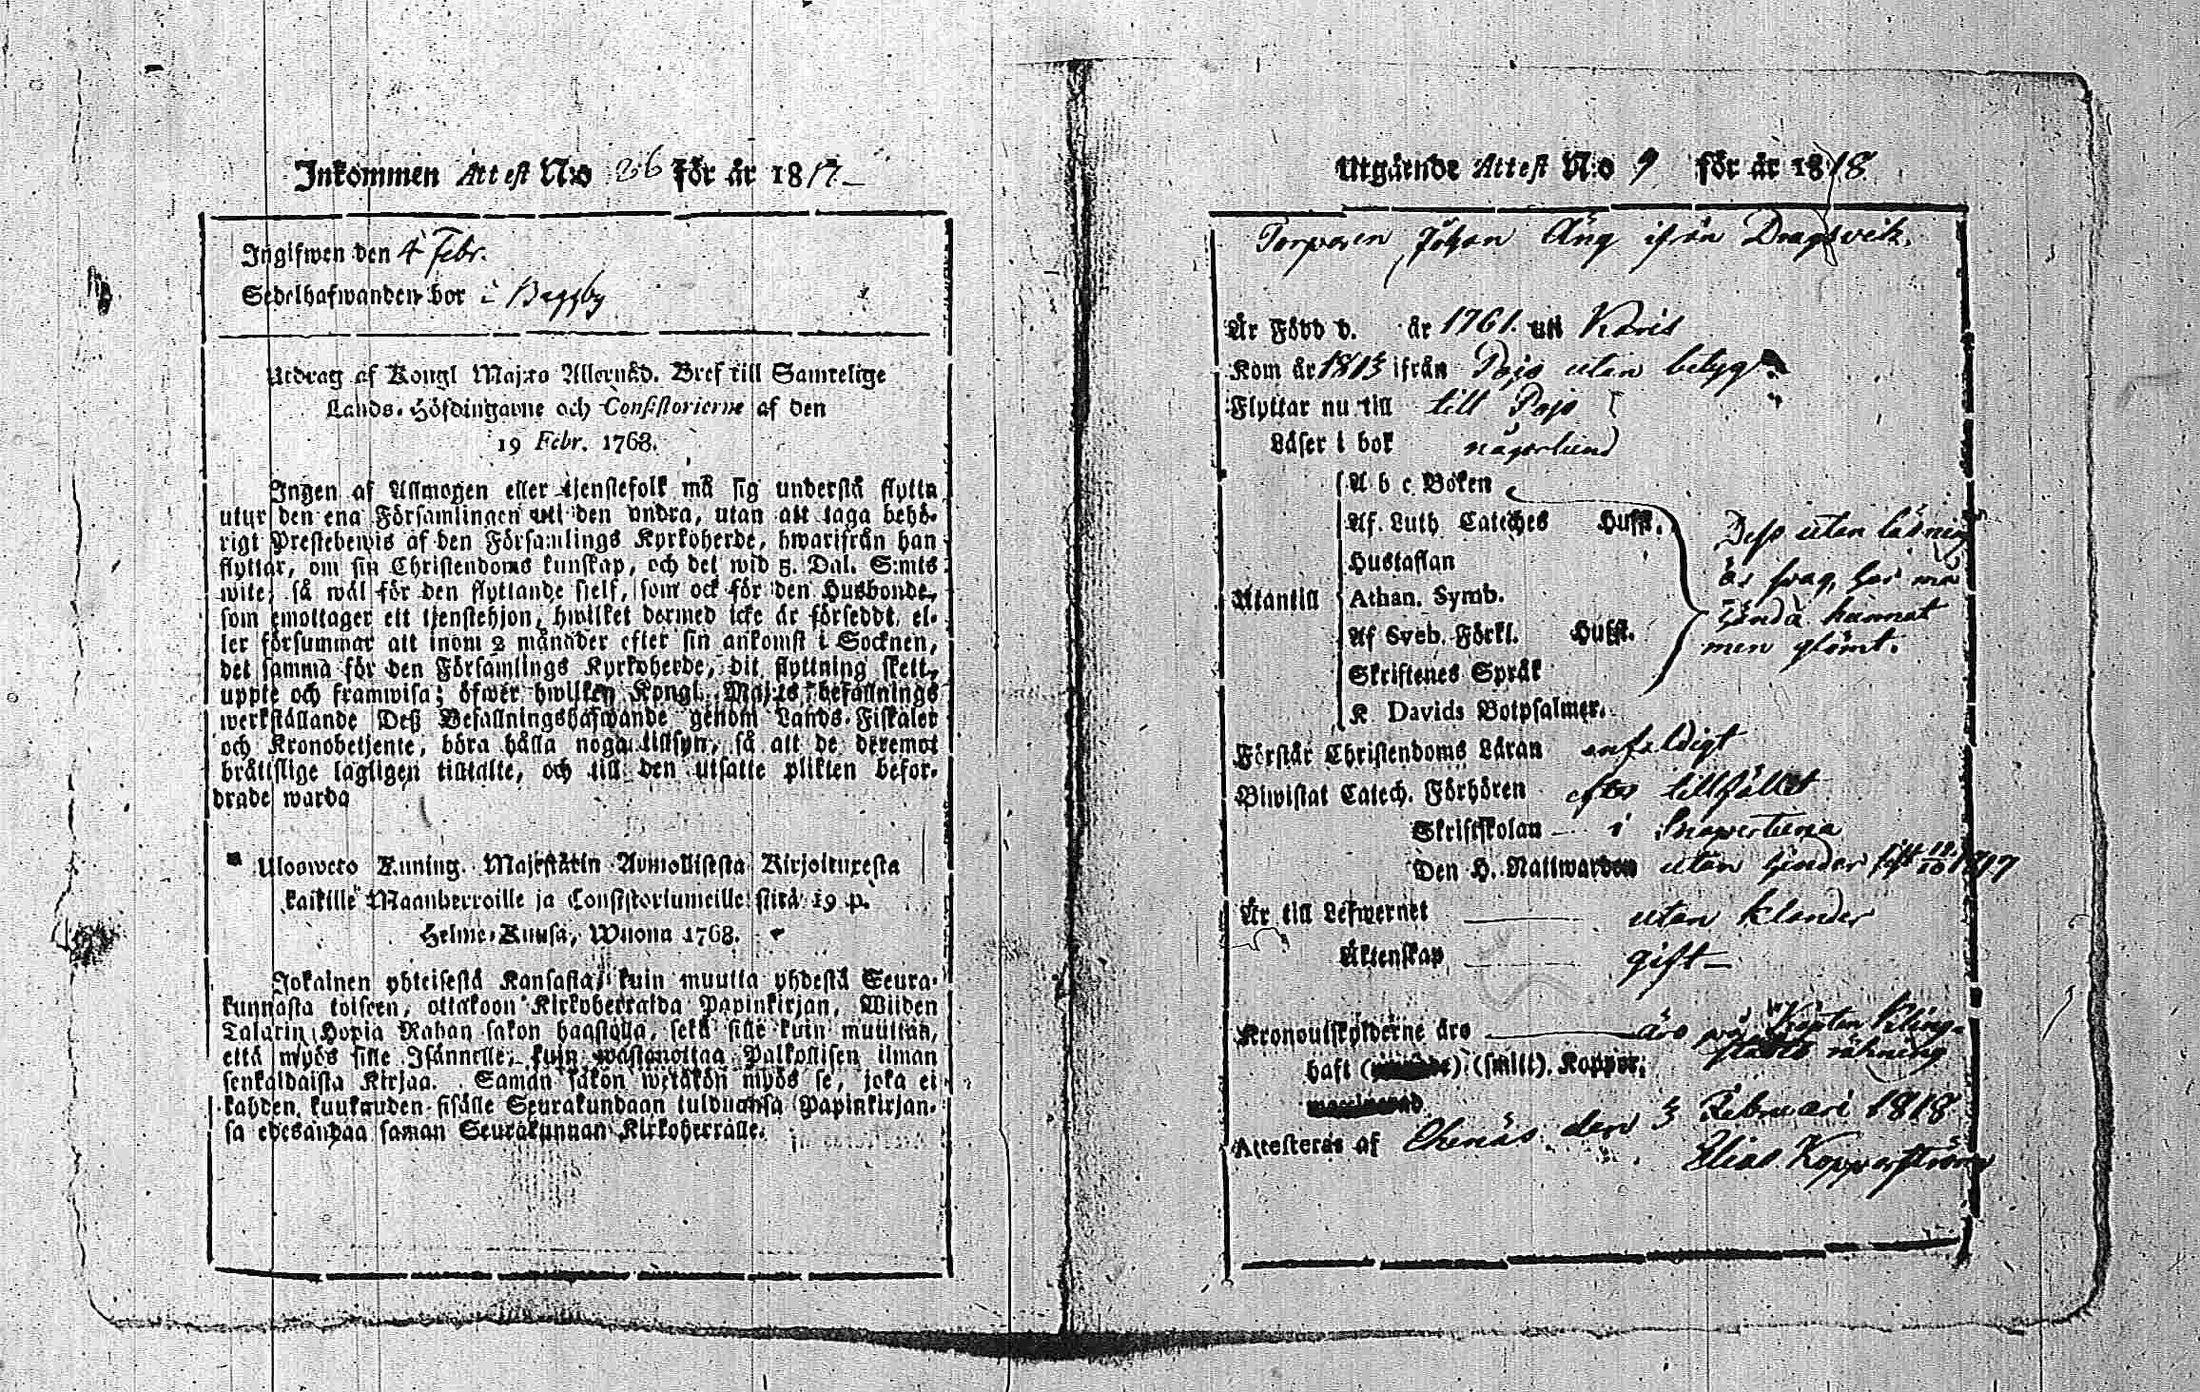 Inkommen Attest N:o 26 för år 1817
Ingifwen den 4 Febr.
Sedelhafwanden bor i Baggby
Utdrag af Kongl Maj:ts Allernåd. Bref till Samtelige
Lands-Höfdingarne och Consistorierne af den
19 Febr. 1768.
Ingen af Allmogen eller tjenstefolk må sig understå flytta
utur den ena Församlingen uti den andra, utan att taga behö-
rigt Prestebewis af den Församlings Kyrkoherde, hwarifrån han
flyttar, om sin Christendoms kunskap, och det wid 5. Dal. S:mts
wite, så wäl för den flyttande sielf, som ock för den Husbonde,
som emottager ett tjenstehjon, hwilket dermed icke är försedt, el-
ler försummar att inom 2 månader efter sin ankomst i Socknen,
det samma för den Församlings Kyrkoherde, dit flyttning skett,
uppte och framwisa; öfwer hwilken Kongl. Maj:ts befallnings
werkställande Deß Befallningshafwande genom Lands-Fiskaler
och Kronobetjente, böra hålla noga tillsyn, så att de deremot
bråttslige lagligen tilltalte, och till den utsatte plikten befor-
drade warda
Uloswero Kuning. Majestätin Armollisesta Kirjoituxesta
kaikille Maanherroille ja Consistoriumeille siitä 19 p.
Helme-Kuusa, Wuona 1768.
Jokainen yhteisestä Kansasta, kuin muutta yhdestä Seura-
kunnasta toiseen, ottakoon Kirkoherralda Papinkirjan, Wiiden
Talarin Hopia Rahan sakon haastolla, sekä sille kuin muuttaa,
että myös sille Isännelle, kuin wastanottaa Palkollisen ilman
senkaldaista Kirjaa. Saman sakon wetäkön myös se, joka ei
kahden kuukauden sisälle Seurakundaan tulduansa Papinkirjan-
sa edesandaa saman Seurakunnan Kirkoherralle.
Utgående Attest N:o 9 för år 1818
Torparen Johan Äng ifrån Dragsvik.
Är Född d. år 1761. uti Karis
Kom år 1813 ifrån Pojo utan betyg
Flyttar nu till till Pojo
Läser i bok någorlund
A b c Boken
Af. Luth Cateches Hufst.
Hustaflan
Utantill Athan. Symb.
Af Sveb. Förkl. Hufst.
Skriftenes Språk
K Davids Botpsalmer.
Dess utan läsning
är svag, har må
hända kunnat
men glömt.
Förstår Christendoms Läran enfaldigt
Biwistat Catech. Förhören efter tillfället
Skriftskolan i
Den H. Nattwarden utan hinder sist 12/10 1817
Är till Lefwernet utan klander
Äktenskap gift
Kronoutskylderne äro äro på Kapten Kling-
stedts räkning
haft (smitt). Koppor.
Attesteras af Ekenäs den 3 Februari 1818
Elias Kopperström